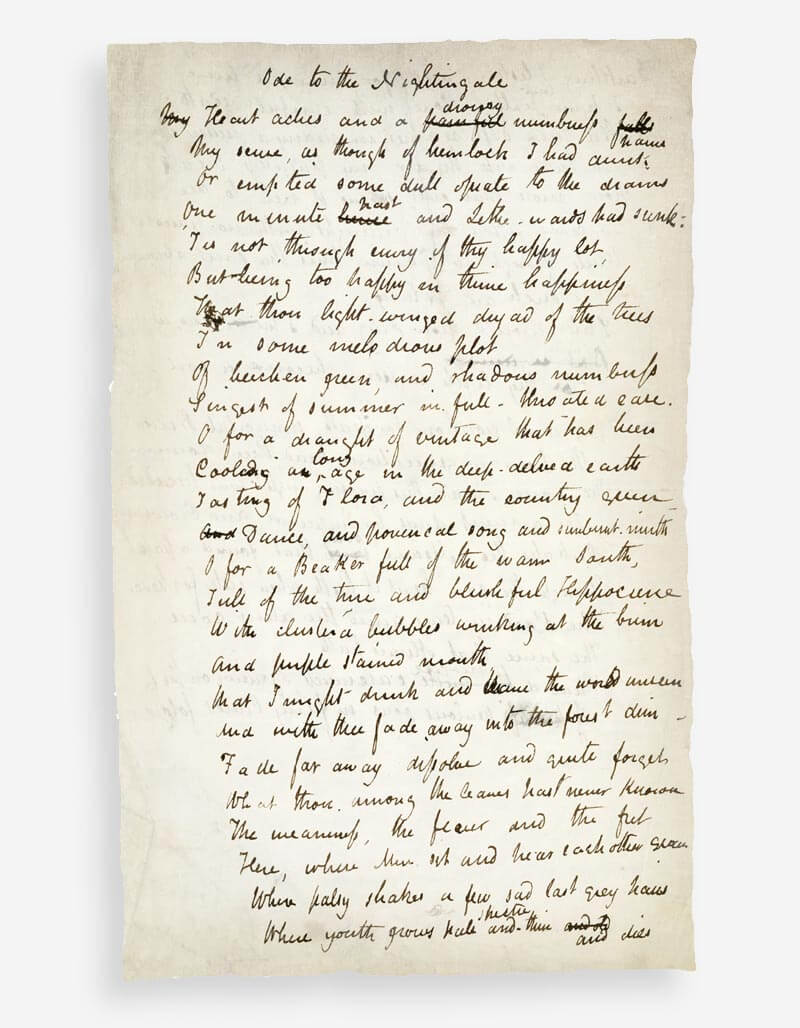 Ode to the Nightingale
drowsy
My Heart aches and a painful numbness falls
pains
My sense, as though of hemlock I had drunk.
Or emptied some dull opiate to the drains
past
One minute hence and Lethe-wards had sunk:
'Tis not through envy of thy happy lot,
But being too happy in thine happiness
That thou light-winged dryad of the trees
In some melodious plot
Of beechen green, and shadows numberless
Singest of summer in full-throated ease.
O for a draught of vintage that has been
long
Cooling an age in the deep-delved earth
Tasting of Flora, and the country green
And Dance, and provencal song and sunburnt mirth
O for a Beaker full of the warm South,
Full of the true and blushful Hippocrene
With cluster'd bubbles winking at the brim
And purple stained mouth
That I might drink and leave the world unseen
And with thee fade away into the forest dim -
Fade far away dissolve and quite forget
What thou among the leaves hast never known
The weariness, the fever and the fret
Here, where Men sit and hear each other groan
Where palsy shakes a few sad last grey hairs
spectre
Where youth grows pale and thin and old
and dies